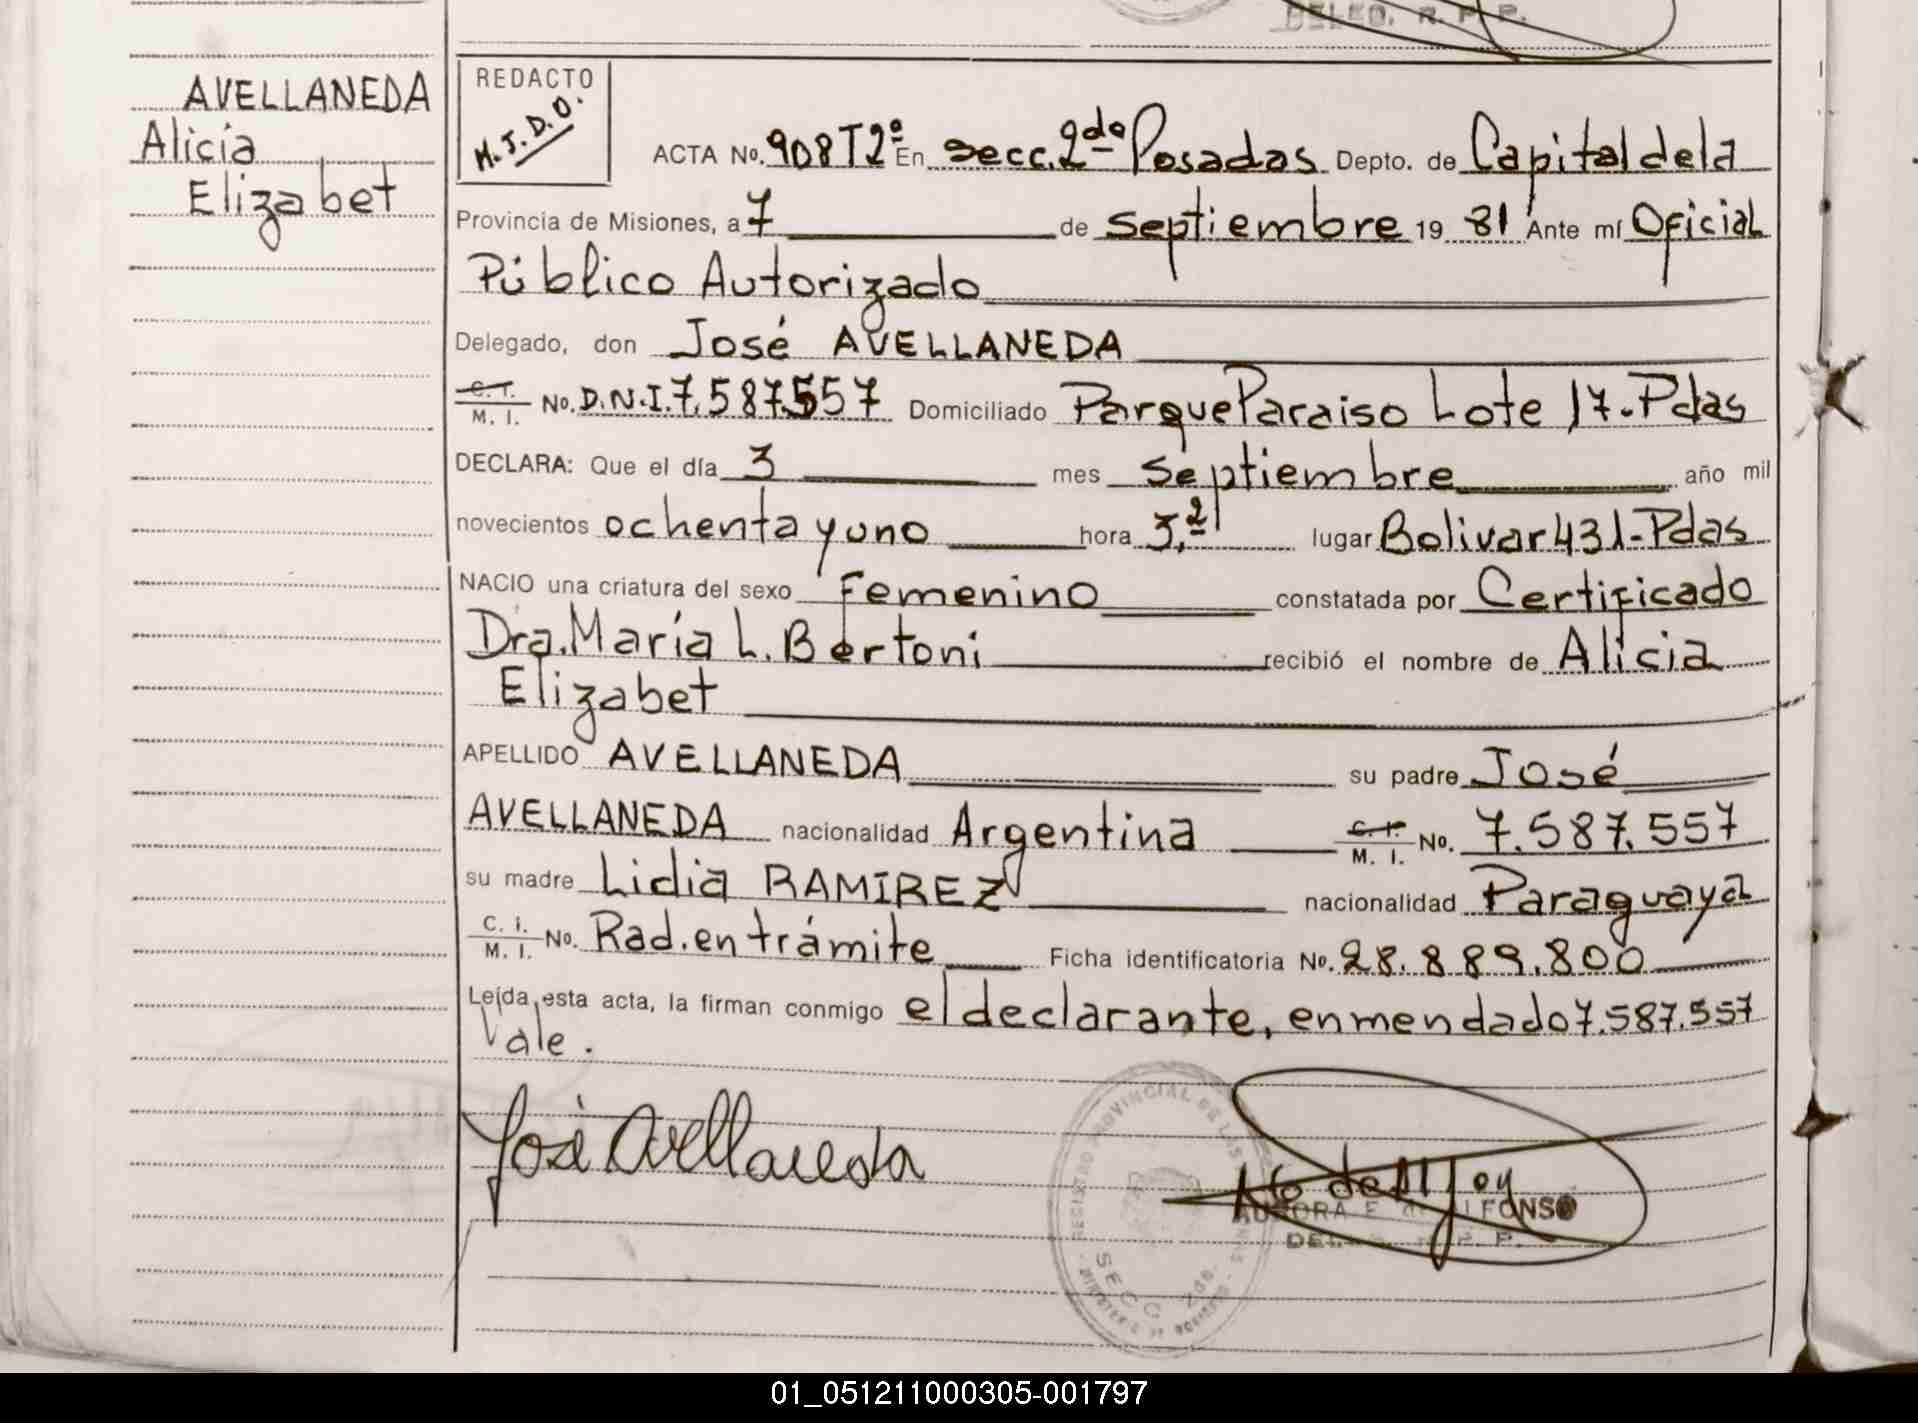 DELEG. R. P. P.
AVELLANEDA
Alicia
Elizabet
REDACTO
M.J.D.O.
ACTA No. 908 T2º En secc. 2da Posadas Depto. de Capital de la
Provincia de Misiones, a 7 de septiembre 19 81 Ante mí Oficial
Público Autorizado
Delegado, don José AVELLANEDA
C. I. M. I. No. D.N.I. 7.587.557 Domiciliado Parque Paraiso Lote 17.-Pdas
DECLARA: Que el día 3 mes septiembre año mil
novecientos ochenta y uno hora lugar Bolivar 431-Pdas
NACIO una criatura del sexo Femenino constatada por Certificado
Dra. María L. Bertoni recibió el nombre de Alicia
Elizabet
APELLIDO AVELLANEDA su padre José
AVELLANEDA nacionalidad Argentina C. I. M. I. No. 7.587.557
su madre Lidia RAMIREZ nacionalidad Paraguaya
C. I. M. I. No. Rad. en trámite Ficha identificatoria No. 28.889.800
Leída esta acta, la firman conmigo el declarante, enmendado 7.587.557
Vale.
José Avellaneda
REGISTRO PROVINCIAL DE LAS
SECC. 2da.
AURORA E. ALFONSO
DELEG. R. P. P.
01_051211000305-001797